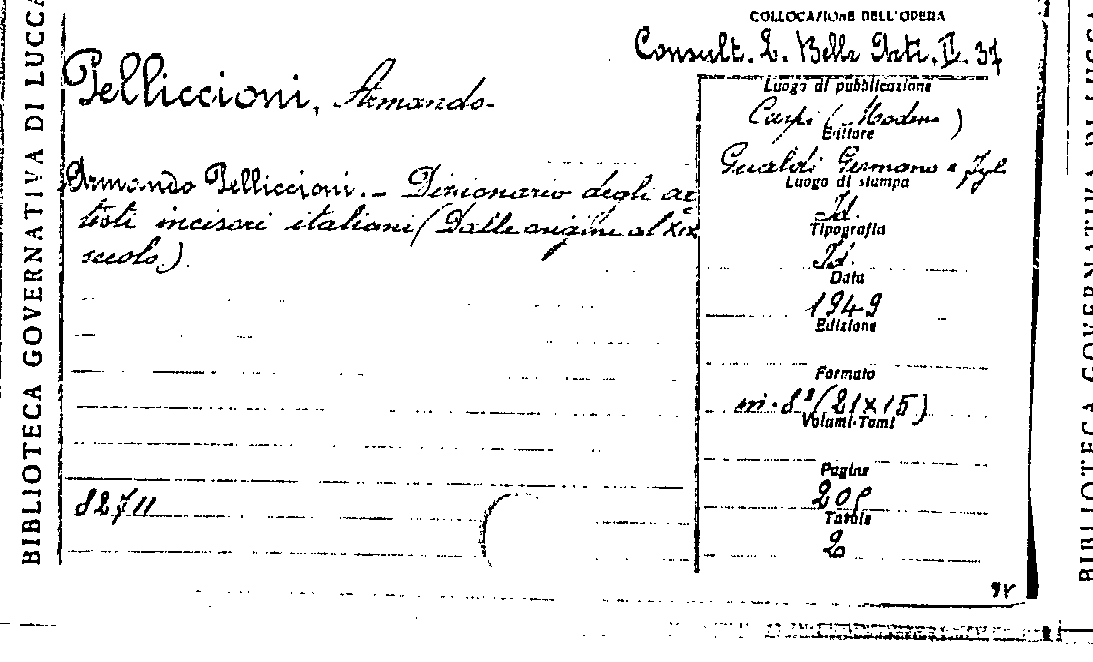 BIBLIOTECA GOVERNATIVA DI LUCCA
COLLOCAZIONE DELL'OPERA
Consult. L. Belle Arti. II. 37
Pelliccioni, Armando.
Armando Pelliccioni. - Dizionario degli ar
tisti incisori italiani (Dalle origini al XIX
secolo.)
82711
Luogo di pubblicazione
Carpi (Modena)
Editore
Gualdi Germano e
Luogo di stampa
Id.
Tipografia
Id.
Data
1949
Edizione
Formato
in-8° (21x15)
Volumi-Tomi
Pagine
Tavole
2